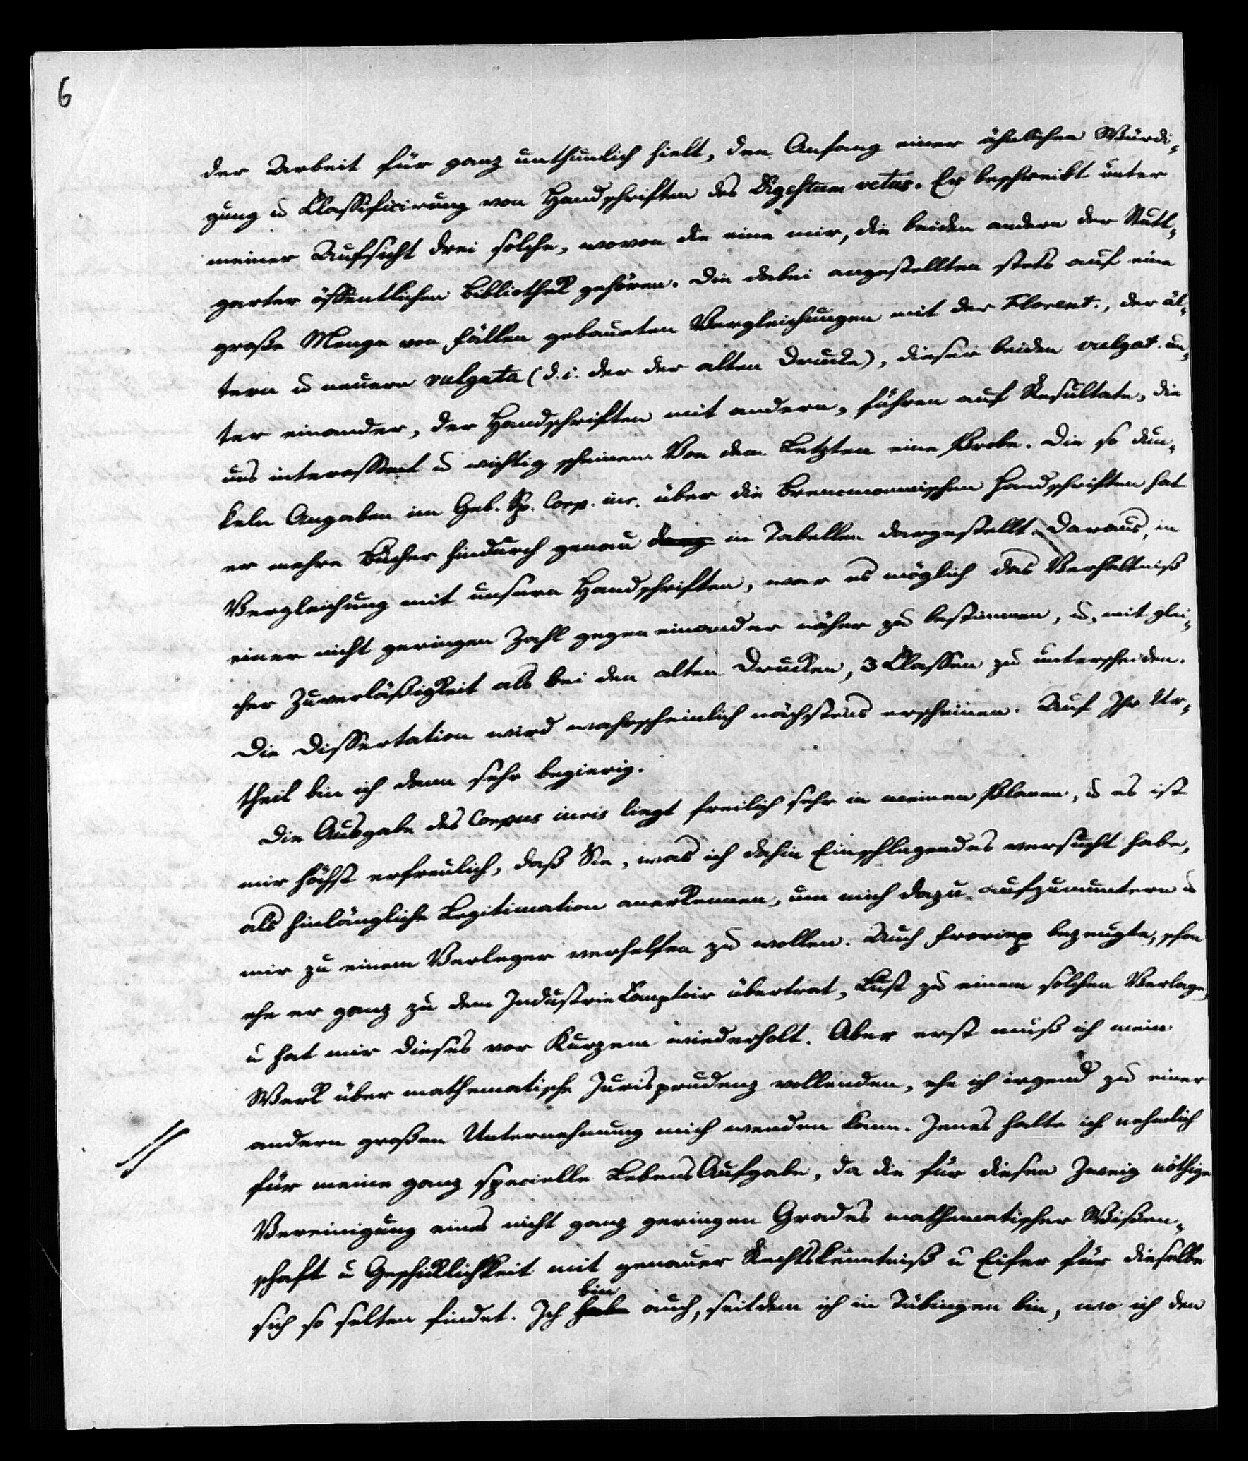 6
der Arbeit für ganz unthunlich hielt, den Anfang einer ähnlichen Würdi-
gung u Classificirung von Handschriften des Digestum vetus. Er beschreibt unter
meiner Aufsicht drei solche, wovon die eine mir, die beiden andern der Stutt-
garter öffentlichen Bibliothek gehören. Die dabei angestellten stets auf eine
große Menge von Fällen gebauten Vergleichungen mit der Florent., der äl-
tern u neuern vulgata (d.i. der der alten Drucke), dieser beiden vulgat. un-
ter einander, der Handschriften mit andern, führen auf Resultate, die
uns interessant u wichtig scheinen. Von dem Letzten eine Probe. Die so dun-
keln Angaben im Geb. Sp. Corp. iur. über die Brencmannischen Handschriften hat
er mehre Bücher hindurch genau in Tabellen dargestellt. Daraus, in
Vergleichung mit unsern Handschriften, war es möglich das Verhältniß
einer nicht geringen Zahl gegen einander näher zu bestimmen, u, mit glei-
cher Zuverläßigkeit als bei den alten Drucken, 3 Classen zu unterscheiden.
Die Dissertation wird wahrscheinlich nächstens erscheinen. Auf Ihr Ur-
theil bin ich denn sehr begierig.
Die Ausgabe des Corpus iuris liegt freilich sehr in meinen Planen, u es ist
mir höchst erfreulich, daß Sie, was ich dahin Einschlagendes versucht habe,
als hinlängliche Legitimation anerkennen, um mich dazu aufzumuntern u
mir zu einem Verleger verhelfen zu wollen. Auch Froriep bezeugte, schon
ehe er ganz zu dem Industrie Comptoir übertrat, Lust zu einem solchen Verlage,
u hat mir dieses vor Kurzem wiederholt. Aber erst muß ich mein
Werk über mathematische Jurisprudenz vollenden, ehe ich irgend zu einer
andern großen Unternehmung mich wenden kann. Jenes halte ich nehmlich
für meine ganz specielle LebensAufgabe, da die für diesen Zweig nöthige
Vereinigung eines nicht ganz geringen Grades mathematischer Wißen-
schaft u Geschicklichkeit mit genauer Rechtskenntniß u Eifer für dieselbe
sich so selten findet. Ich habe bin auch, seitdem ich in Tübingen bin, wo ich den